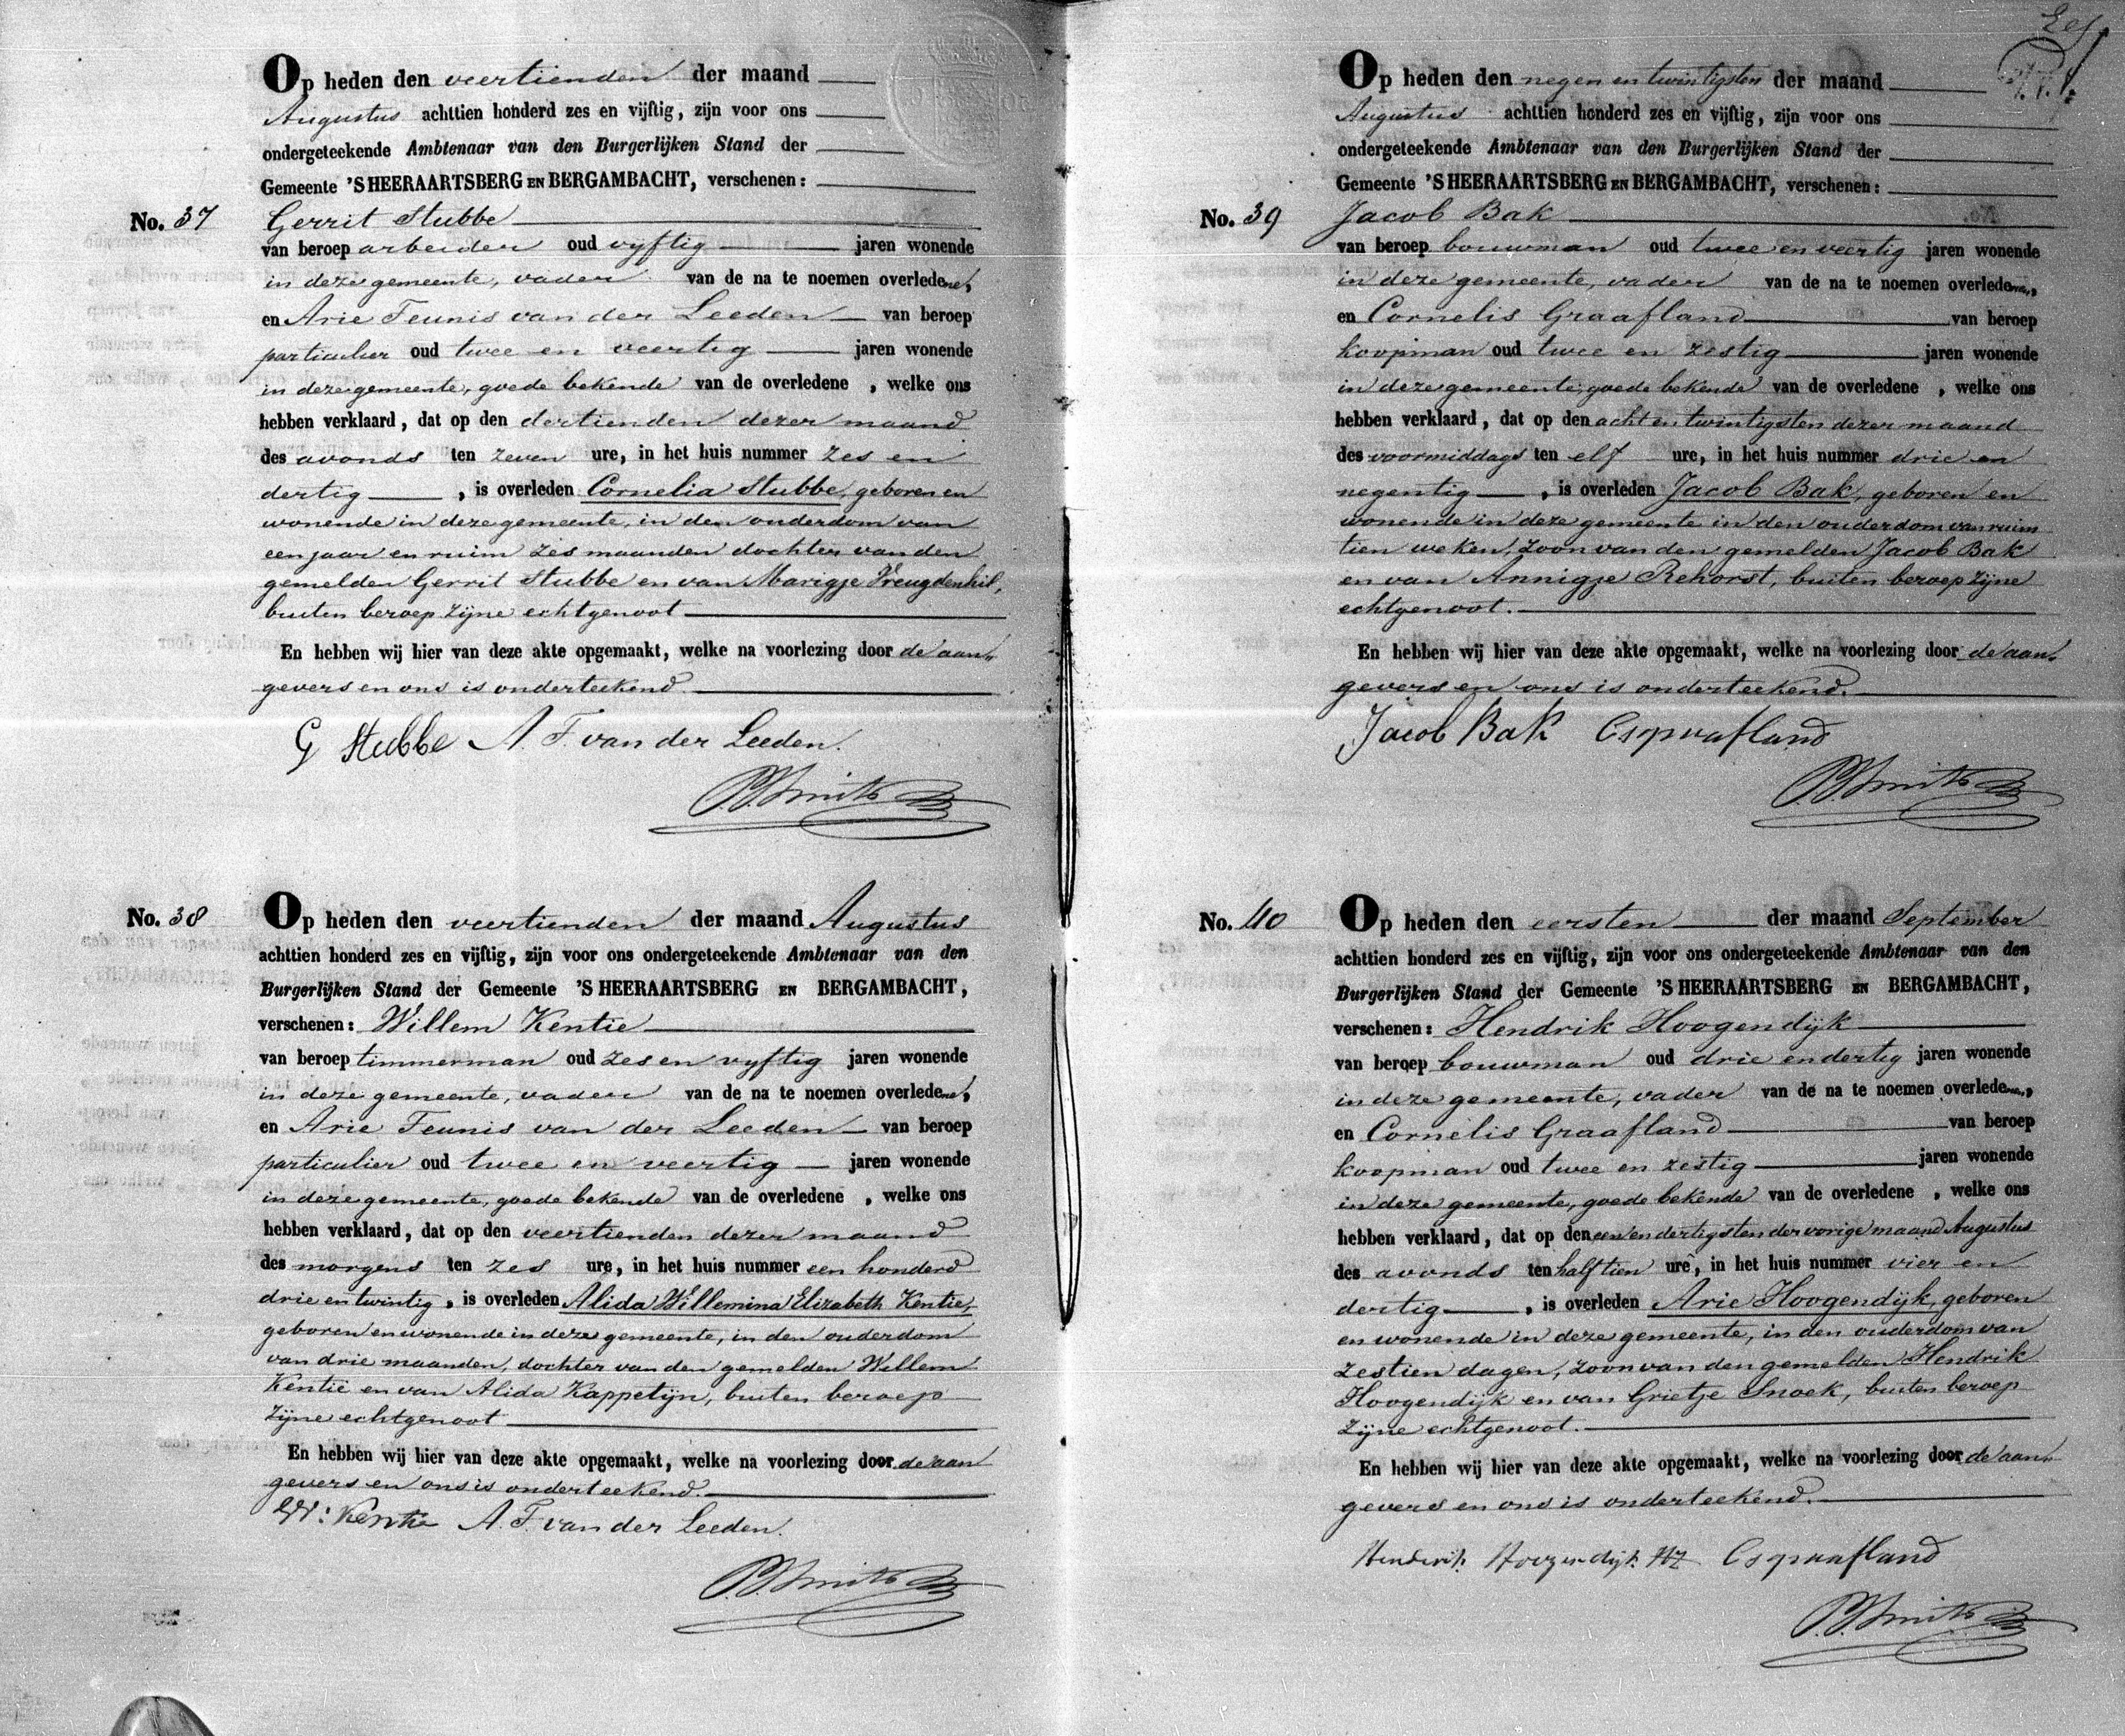 Op heden den veertienden der maand
Augustus achttien honderd zes en vijftig, zijn voor ons
ondergeteekende Ambtenaar van den Burgerlijken Stand der
Gemeente 'SHEERAARTSBERG EN BERGAMBACHT, verschenen:
No. 37 Gerrit Stubbe
van beroep arbeider oud vyftig jaren wonende
in deze gemeente, vader van de na te noemen overledene,
en Arie Teunis van der Leeden van beroep
particulier oud twee en veertig jaren wonende
in deze gemeente, goede bekende van de overledene, welke ons
hebben verklaard, dat op den dertienden dezer maand
des avonds ten zeven ure, in het huis nummer zes en
dertig, is overleden Cornelia Stubbe, geboren en
wonende in deze gemeente, in den ouderdom van
een jaar en ruim zes maanden dochter van den
gemelden Gerrit Stubbe en van Marigje Vreugdenhil,
buiten beroep zijne echtgenoot
En hebben wij hier van deze akte opgemaakt, welke na voorlezing door de aan„
gevers en ons is onderteekend.
G Stubbe A. T. van der Leeden.
Smits
No. 38 Op heden den veertienden der maand Augustus
achttien honderd zes en vijftig, zijn voor ons ondergeteekende Ambtenaar van den
Burgerlijken Stand der Gemeente 'SHEERAARTSBERG EN BERGAMBACHT,
verschenen: Willem Kentie
van beroep timmerman oud zes en vyftig jaren wonende
in deze gemeente, vader van de na te noemen overledene,
en Arie Teunis van der Leeden van beroep
particulier oud twee en veertig jaren wonende
in deze gemeente, goede bekende van de overledene, welke ons
hebben verklaard, dat op den veertienden dezer maand
des morgens ten zes ure, in het huis nummer een honderd
drie en twintig, is overleden Alida Willemina Elizabeth Kentie,
geboren en wonende in deze gemeente, in den ouderdom
van drie maanden, dochter van den gemelden Willem
Kentie en van Alida Kappetijn, buiten beroep
zijne echtgenoot
En hebben wij hier van deze akte opgemaakt, welke na voorlezing door de aan
gevers en ons is onderteekend.
W: Kentie A. T. van der Leeden.
Smits
Op heden den negen en twintigsten der maand
Augustus achttien honderd zes en vijftig, zijn voor ons
ondergeteekende Ambtenaar van den Burgerlijken Stand der
Gemeente 'SHEERAARTSBERG EN BERGAMBACHT, verschenen:
No. 39 Jacob Bak
van beroep bouwman oud twee en veertig jaren wonende
in deze gemeente, vader van de na te noemen overledenen,
en Cornelis Graafland van beroep
koopman oud twee en zestig jaren wonende
in deze gemeente, goede bekende van de overledene, welke ons
hebben verklaard, dat op den acht en twintigsten dezer maand
des voormiddags ten elf ure, in het huis nummer drie en
negentig, is overleden Jacob Bak, geboren en
wonende in deze gemeente in den ouderdom van ruim
tien weken, zoon van den gemelden Jacob Bak
en van Annigje Rehorst, buiten beroep zijne
echtgenoot.
En hebben wij hier van deze akte opgemaakt, welke na voorlezing door de aan„
gevers en ons is onderteekend.
Jacob Bak Cs graafland
Smits
No. 40 Op heden den eersten der maand September
achttien honderd zes en vijftig, zijn voor ons ondergeteekende Ambtenaar van den
Burgerlijken Stand der Gemeente 'SHEERAARTSBERG EN BERGAMBACHT,
verschenen: Hendrik Hoogendijk
van beroep bouwman oud drie en dertig jaren wonende
in deze gemeente, vader van de na te noemen overledenen,
en Cornelis Graafland van beroep
koopman oud twee en zestig jaren wonende
in deze gemeente, goede bekende van de overledene, welke ons
hebben verklaard, dat op den een en dertigsten der vorige maand Augustus
des avonds ten half tien ure, in het huis nummer vier en
dertig, is overleden Arie Hoogendijk, geboren
en wonende in deze gemeente, in den ouderdom van
zestien dagen, zoon van den gemelden Hendrik
Hoogendijk en van Grietje Snoek, buiten beroep
zijne echtgenoot.
En hebben wij hier van deze akte opgemaakt, welke na voorlezing door de aan„
gevers en ons is onderteekend.
Henderik Hoogendijk Hz Cs graafland
Smits